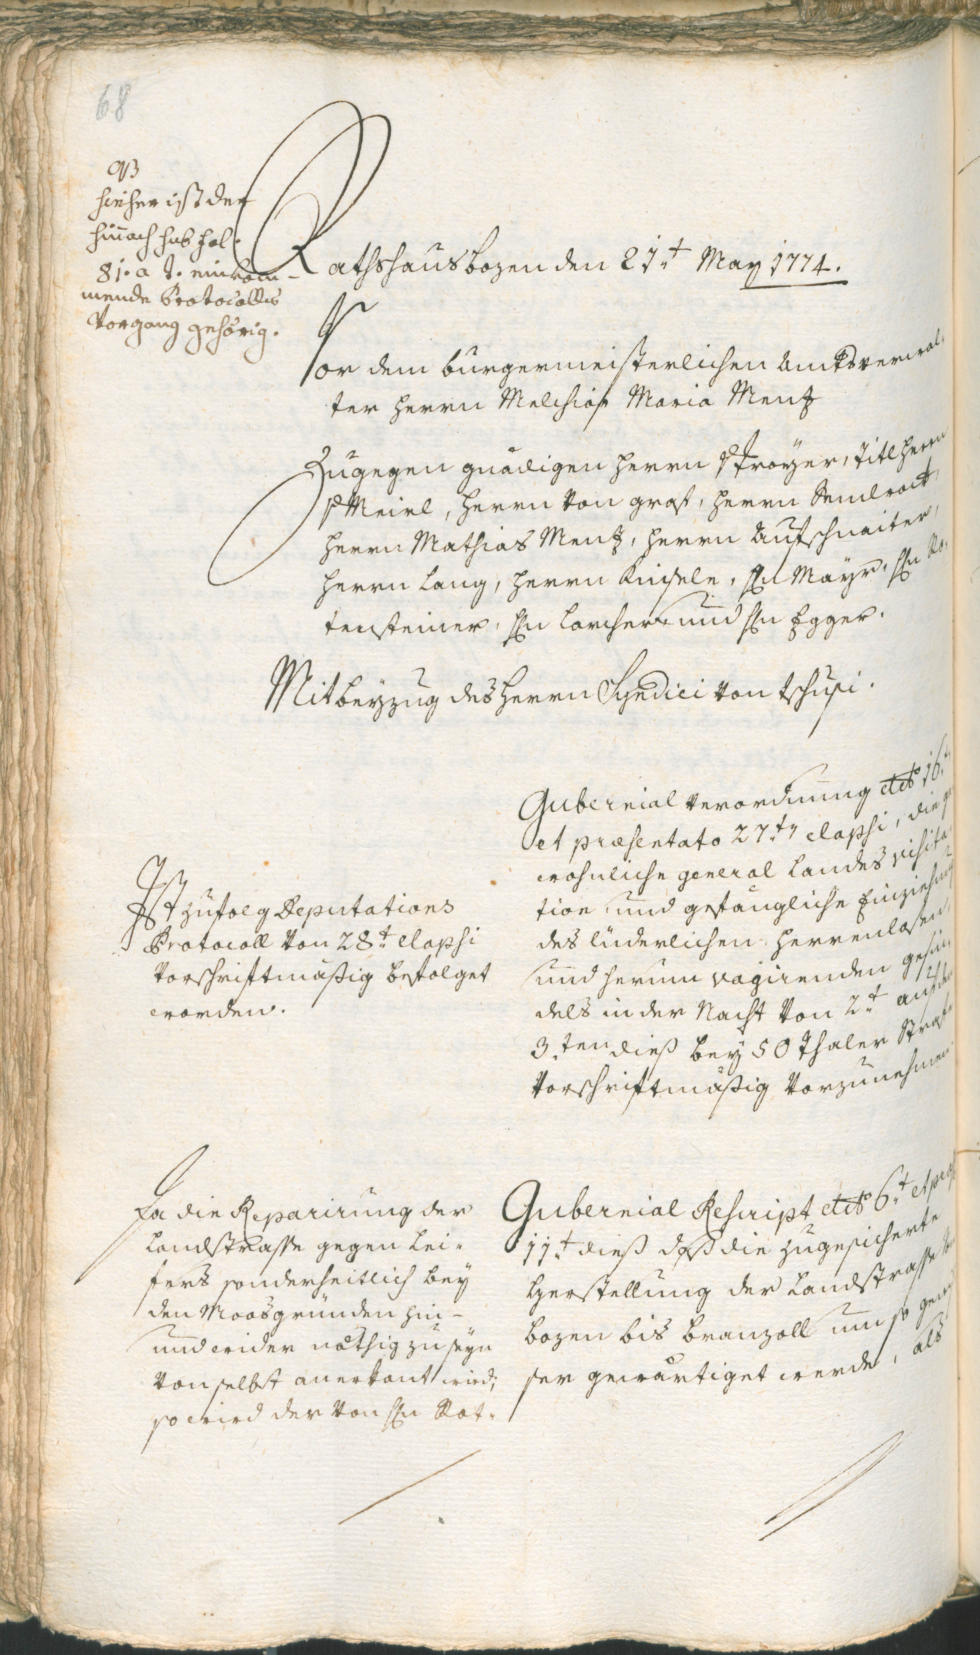 68
NB
hieher ist der
hinnach sub fol.
81. a t. einkom-
mende Protocolls
Vorgang gehörig.
Rathshaus bozen den 21.t May 1774.
Vor dem burgermeisterlichen Amtsverwal-
ter herrn Melchior Maria Mentz
Zugegen gnädigen herrn v Troyer, titl herrn
v Meirl, herrn von graf, herrn Semlrock,
herrn Mathias Mentz, herrn Aufschnaiter,
herrn Lang, herrn Kinsele, Hn Mayr, Hn Ro-
tensteiner, Hn Larcher und Hn Egger.
Mitbeyzug des herrn Syndici von tschusi.
Gubernial verordnung dto 16.t
et præsentato 27.t elapsi, die ge-
wohnliche general Landes visita-
tion und gefängliche Einziehung
des lüderlichen herrenlosen,
und herum vagirenden gesin-
dels in der Nacht von 2.t auf den
3.ten dieß bey 50 Thaler Straf
vorschriftmäßig vorzunehmen.
Ist zufolg Deputations
Protocoll von 28.t elapsi
vorschriftmäßig befolget
worden.
Gubernial Rescript dto 6.t et præs
11.t dieß daß die zugesicherte
Herstellung der Landstrasse v
bozen bis branzoll um so gewis-
ser gewärtiget werde, als
Da die Reparirung der
Landstrasse gegen Lei-
fers sonderheitlich bey
den Moosgründen hin-
und wider nöthig zu seyn
von selbst anerkant wird;
so wird der von Hn Rot-